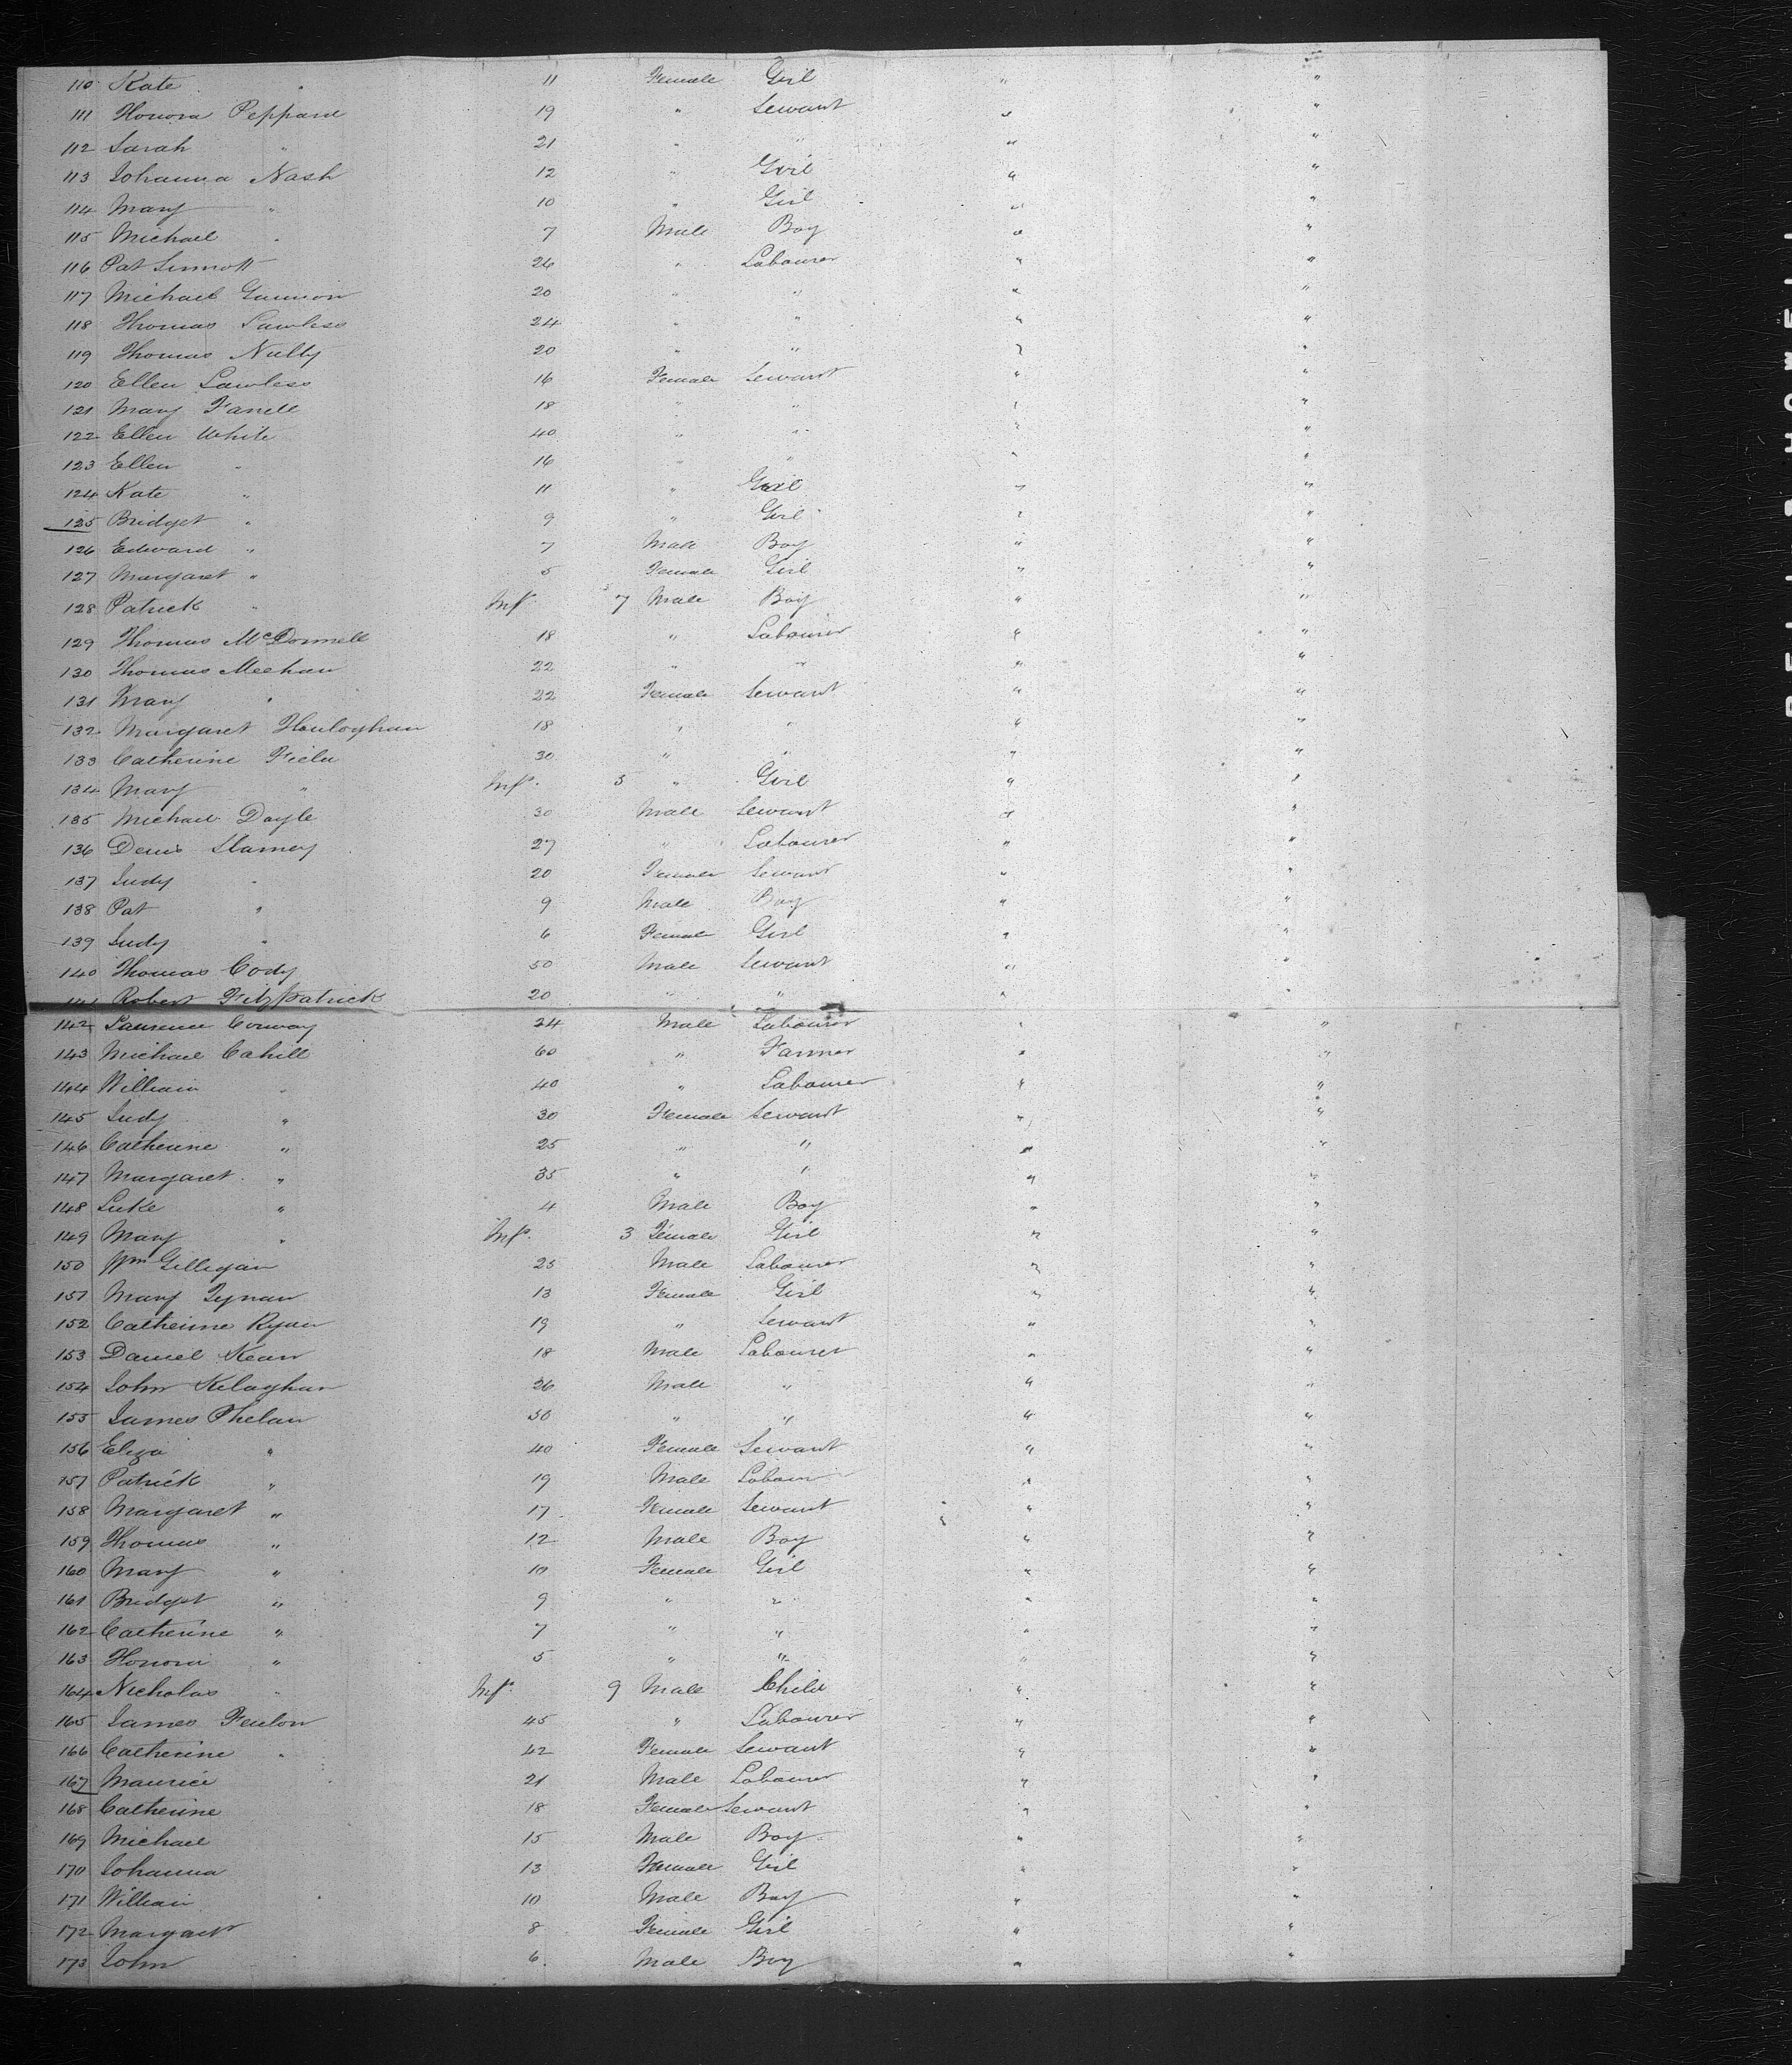 110 Kate " 11 Female Girl " "
111 Honora Peppard 19 " Servant " "
112 Sarah " 21 " " " "
113 Johanna Nash 12 " Girl " "
114 Mary " 10 " Girl " "
115 Michael " 7 Male Boy " "
116 Pat Sinnott 26 " Labourer " "
117 Michael Gannion 20 " " " "
118 Thomas Lawless 24 " " " "
119 Thomas Nulty 20 " " " "
120 Ellen Lawless 16 Female Servant " "
121 Mary Farrell 18 " " " "
122 Ellen White 40 " " " "
123 Ellen " 16 " " " "
124 Kate " 11 " Girl " "
125 Bridget " 9 " Girl " "
126 Edward " 7 Male Boy " "
127 Margaret " 5 Female Girl " "
128 Patrick " Inft. 7 Male Boy " "
129 Thomas McDonnell 18 " Labourer " "
130 Thomas Meehan 22 " " " "
131 Mary " 22 Female Servant " "
132 Margaret Houloghan 18 " " " "
133 Catherine Field 30 " " " "
134 Mary " Inft. 5 " Girl " "
135 Michael Doyle 30 Male Servant " "
136 Denis 27 " Labourer " "
137 Judy " 20 Female Servant " "
138 Pat " 9 Male Boy " "
139 Judy " 6 Female Girl " "
140 Thomas Cody 50 Male Servant " "
141 Robert Fitzpatrick 20 " " " "
142 Laurence Conway 24 Male Labourer " "
143 Michael Cahill 60 " Farmer " "
144 William " 40 " Labourer " "
145 Judy " 30 Female Servant " "
146 Catherine " 25 " " " "
147 Margaret " 35 " " " "
148 Luke " 4 Male Boy " "
149 Mary " Inft. 3 Female Girl " "
150 Wm Gilligan 25 Male Labourer " "
151 Mary Tynan 13 Female Girl " "
152 Catherine Ryan 19 " Servant " "
153 Daniel Kean 18 Male Labourer " "
154 John Kilaghan 26 Male " " "
155 James Phelan 50 " " " "
156 Eliza " 40 Female Servant " "
157 Patrick " 19 Male Labour " "
158 Margaret " 17 Female Servant " "
159 Thomas " 12 Male Boy " "
160 Mary " 10 Female Girl " "
161 Bridget " 9 " " " "
162 Catherine " 7 " " " "
163 Honora " 5 " " " "
164 Nicholas " Inft. 9 Male Child " "
165 James Fenlon 45 " Labourer " "
166 Catherine " 42 Female Servant " "
167 Maurice 21 Male Labourer " "
168 Catherine 18 Female Servant " "
169 Michael 15 Male Boy " "
170 Johanna 13 Female Girl " "
171 William 10 Male Boy " "
172 Margaret 8 Female Girl " "
173 John 6 Male Boy " "